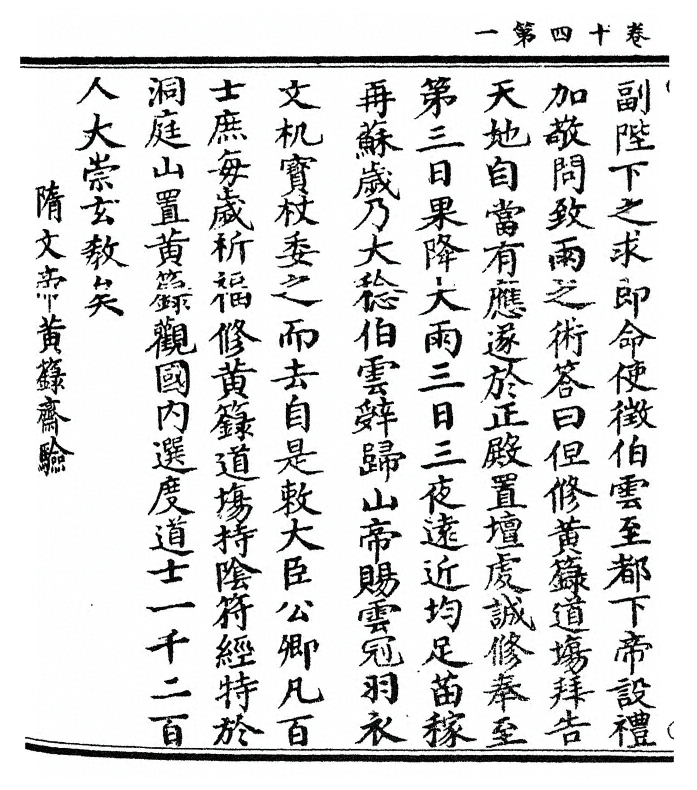 卷十四第一
副陛下之求即命使徵伯雲至都下帝設禮
加敬問致雨之術答曰但修黃籙道塲拜告
天地自當有應遂於正殿置壇虔誠修奉至
第三日果降大雨三日三夜遠近均足苗稼
再蘇歲乃大稔伯雲辭歸山帝賜雲冠羽衣
文机寶杖委之而去自是敕大臣公卿凡百
士庶每歲祈福修黃籙道塲持陰符經特於
洞庭山置黃籙觀國內選度道士一千二百
人大崇玄教矣
隋文帝黃籙齋驗